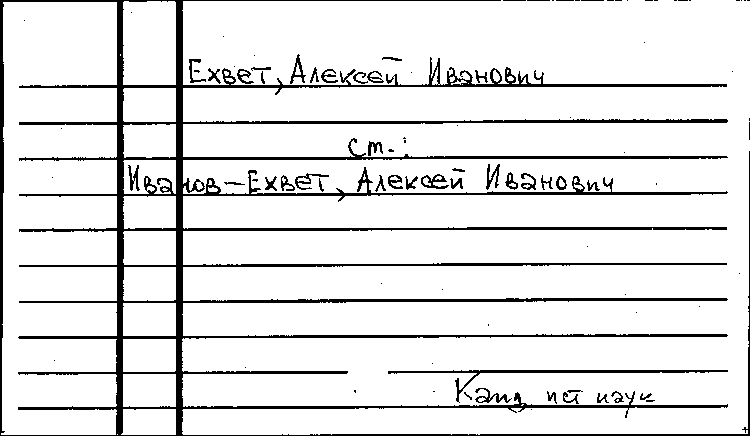 Ехвет, Алексей Иванович
см.:
Иванов-Ехвет, Алексей Иванович
Канд ист наук